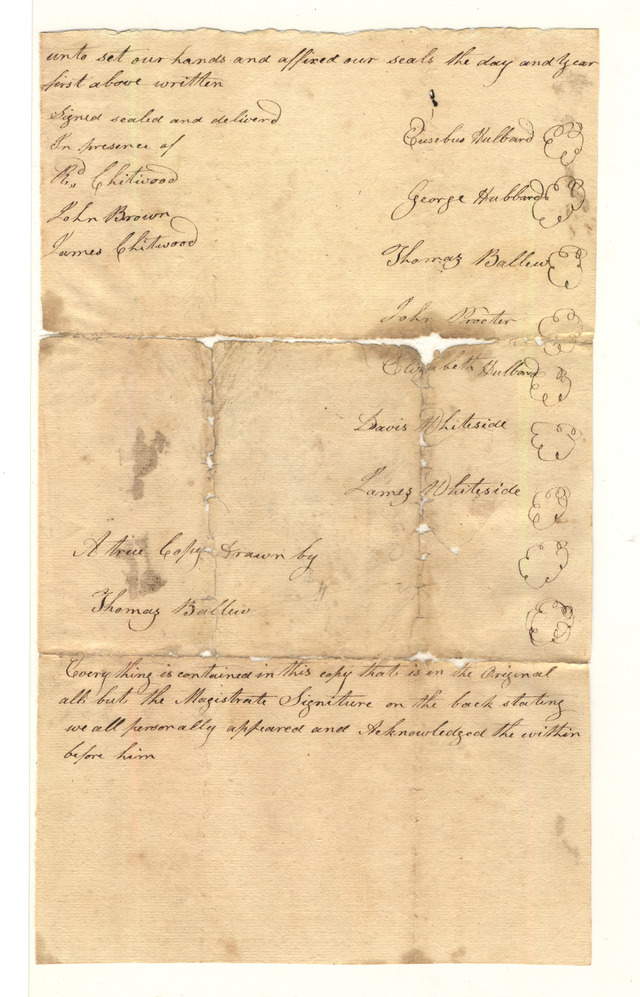 unto set our hands and affixed our seals the day and Year
first above written
Signed sealed and deliverd
In presence of
Rd. Chitwood
John Brown
James Chitwood
Eusebus Hulbard
George Hubbard
Thomas Ballew
John Procter
Elizabeth Hulbard
Davis Whiteside
James Whiteside
A true Copy Drawn by
Thomas Ballew
Every thing is contained in this copy that is in the Original
all but the Magistrate Signiture on the back stating
we all personally appeared and Acknowledged the within
before him